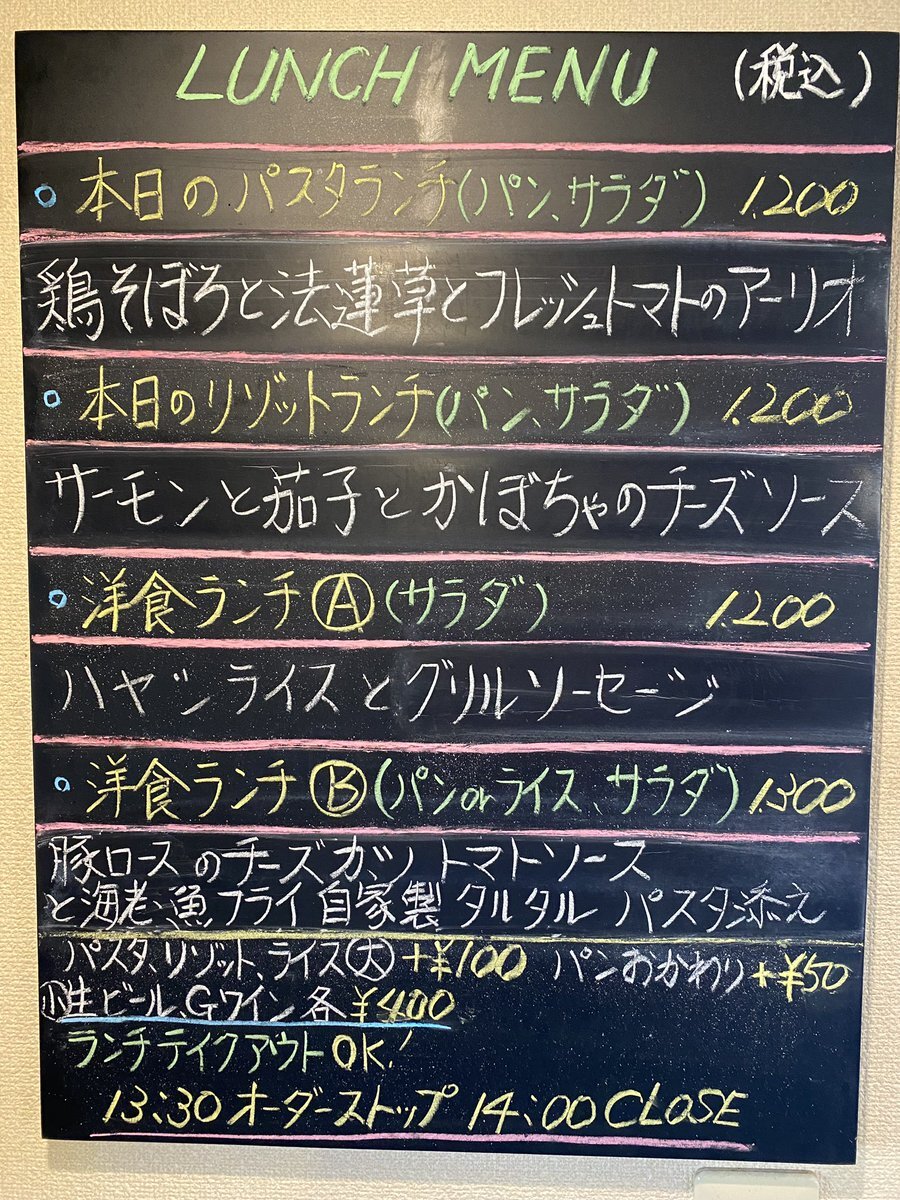 LUNCH MENU (税込)
本日のパスタランチ(パン、サラダ) 1.200
鶏そぼろと法蓮草とフレッシュトマトのアーリオ
本日のリゾットランチ(パン、サラダ) 1.200
サーモンと茄子とかぼちゃのチーズソース
洋食ランチⒶ(サラダ) 1.200
ハヤシライスとグリルソーセージ
洋食ランチⒷ(パンorライス、サラダ) 1.300
豚ロースのチーズカツ トマトソース
と海老・魚フライ 自家製タルタル パスタ添え
パスタ、リゾット、ライス(大)+¥100 パンおかわり+¥50
小生ビール、Gワイン各¥400
ランチテイクアウトOK!
13:30オーダーストップ 14:00 CLOSE